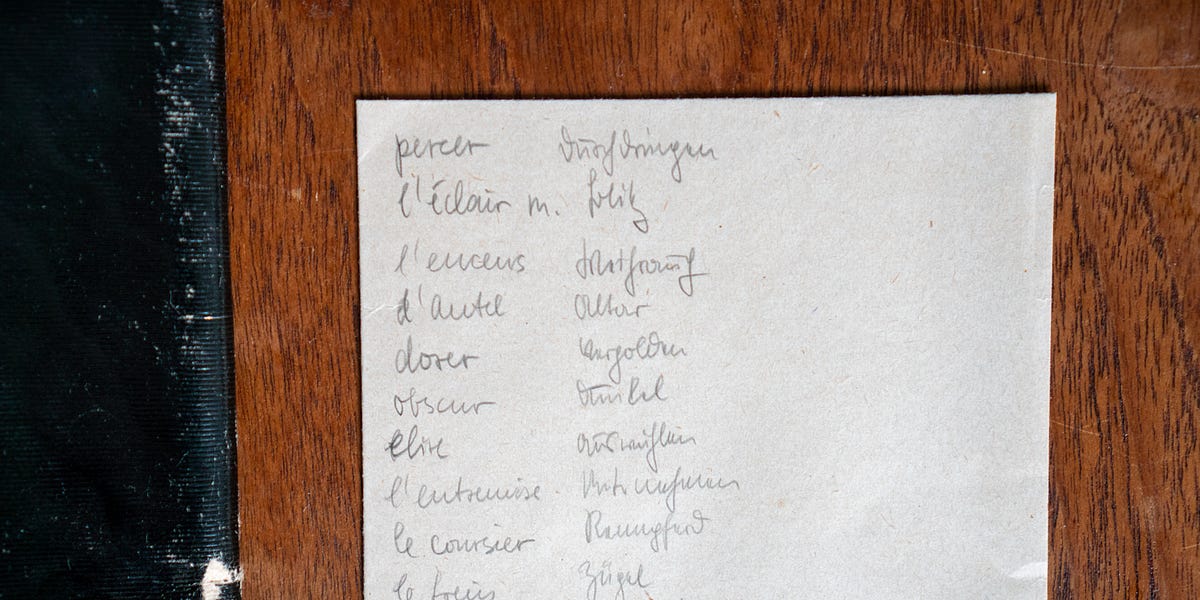 percer durchdringen
l'éclair m. Blitz
l'encens Weihrauch
d'autel Altar
dorer vergolden
obscur dunkel
élire auswählen
l'entremise
le coursier Rennpferd
le frein Zügel